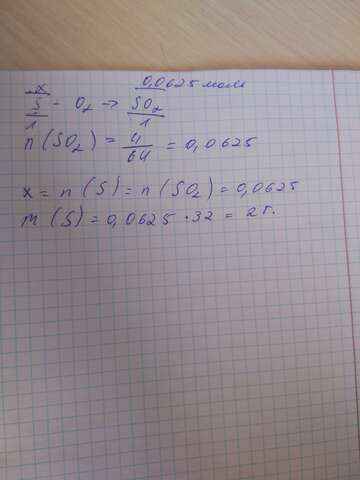 x 0,0625 моль
S - O₂ → SO₂
1 1
n (SO₂) = 4/64 = 0,0625
x = n (S) = n (SO₂) = 0,0625
m (S) = 0,0625 · 32 = 2г.